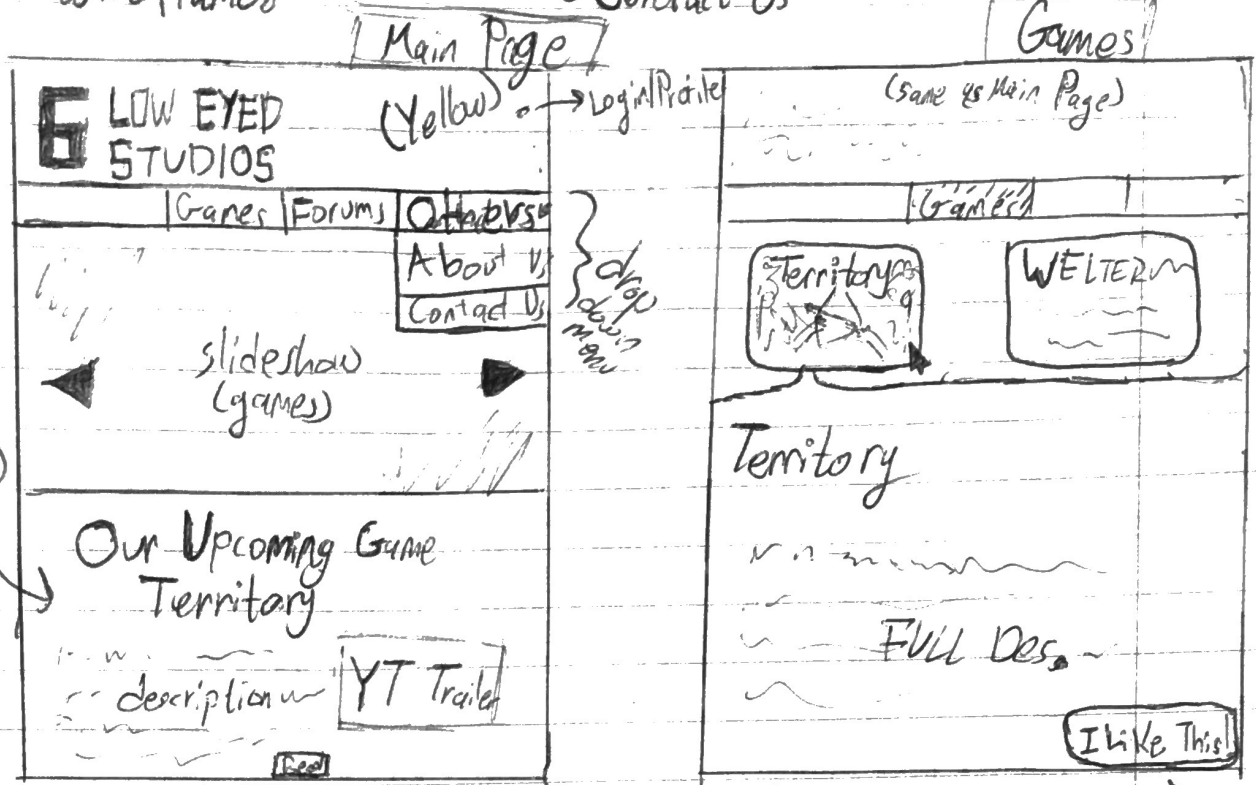 Contact Us
Main Page
Games
6 LOW EYED
STUDIOS
(Yellow)
Login/Profile
Games
Forums
About Us
Contact Us
drop
down
menu
slideshow
(games)
Our Upcoming Game
Territory
description
YT Trailer
(same as Main Page)
Games
Territory
WELTER
Territory
FULL Des.
I Like This